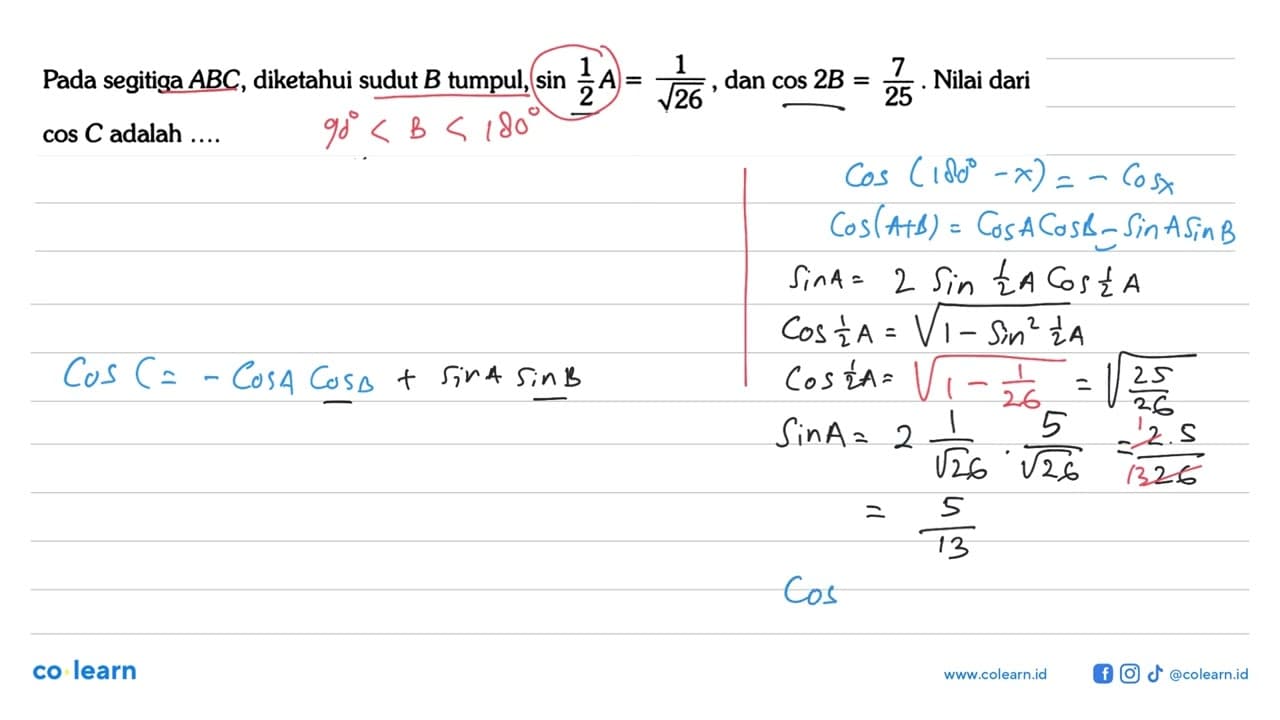 Pada segitiga ABC, diketahui sudut B tumpul, sin 1/2 A = 1/√26, dan cos 2B = 7/25. Nilai dari
cos C adalah ....
90° < B < 180°
Cos (180° - x) = - Cos x
Cos(A+B) = Cos A Cos B - Sin A Sin B
Sin A = 2 Sin 1/2 A Cos 1/2 A
Cos 1/2 A = √1 - Sin² 1/2 A
Cos C = - Cos A Cos B + Sin A Sin B
Cos 1/2 A = √1 - 1/26 = √25/26
Sin A = 2 1/√26 . 5/√26 = 1 2.5/13 26
= 5/13
Cos
co learn
www.colearn.id
@colearn.id